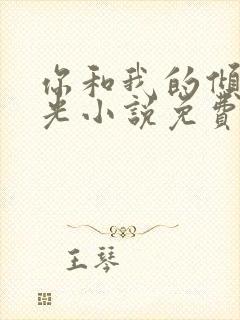 你和我的倾
光小说免费
王琴